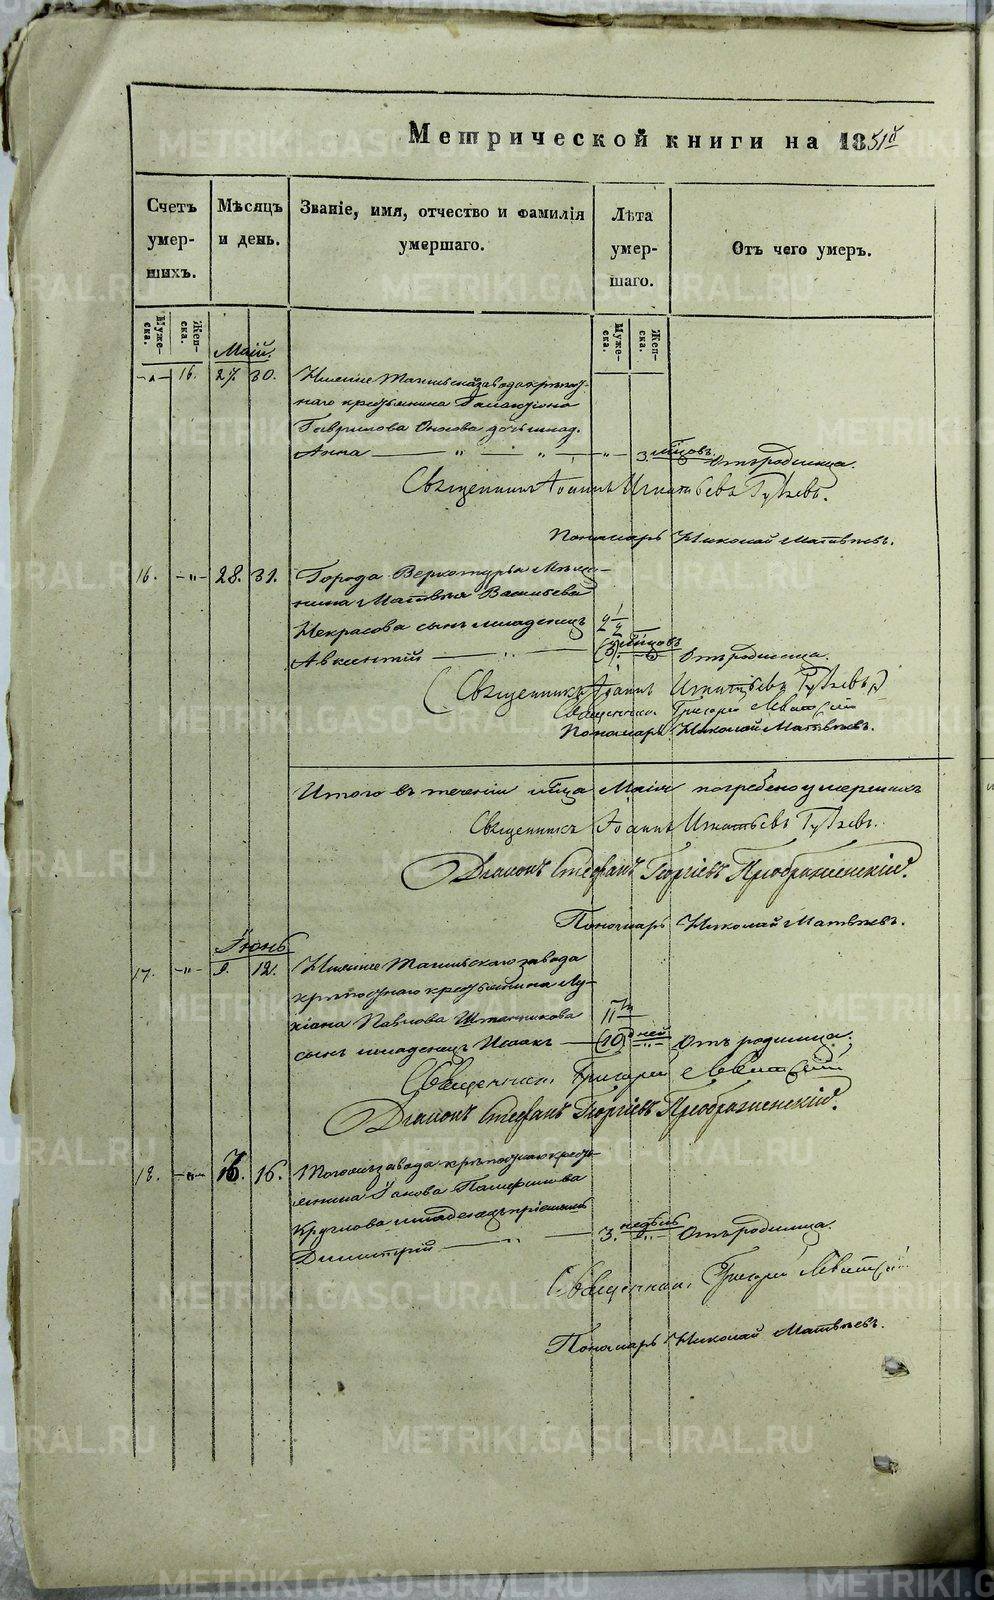 Метрической книги на 1851й
Счетъ умер- шихъ.
Мѣсяцъ и день.
Званіе, имя, отчество и фамилія умершаго.
Лѣта умер- шаго.
Отъ чего умеръ.
Муже- ска.
Жен- ска.
Муже- ска.
Жен- ска.
Маій.
16. 27. 30. Нижне Тагильска завода крѣпост-
наго крестьянина Галактіона
Гаврилова Оносова дочь млад.
Анна — " — " — " — 3. мѣсцовъ. Отъ родимца.
Священникъ Іоаннъ Игнатьевъ
Пономарь Николай Матвѣевъ.
16. — " — 28. 31. Города Верхотурья Мѣща-
нина Матвѣя Васильева
Некрасова сынъ младенецъ 2 1/2
Авксентій — " — мѣсцовъ Отъ родимца.
(Священникъ Іоаннъ Игнатьевъ
Священникъ Григорій Левитскій
Пономарь Николай Матвѣевъ.
Итого въ теченіи мѣсца Маія погребено умершихъ
Священникъ Іоаннъ Игнатьевъ
Діаконъ Стефанъ Георгіевъ Преображенскій.
Пономарь Николай Матвѣевъ.
Іюнь
17. — " — 9. 12. Нижне Тагильскаго завода
крѣпостнаго крестьянина Лу-
кіана Павлова
сынъ младенецъ Исаакъ — дней Отъ родимца.
Священникъ Григорій Левитскій
Діаконъ Стефанъ Георгіевъ Преображенскій.
18. — " — 16. Тогожъ завода крѣпостнаго кресть-
янина Іакова
Круглова младенецъ пріемышъ
Димитрій — " — 3. недѣль Отъ родимца.
Священникъ Григорій Левитскій
Пономарь Николай Матвѣевъ.
METRIKI.GASO-URAL.RU